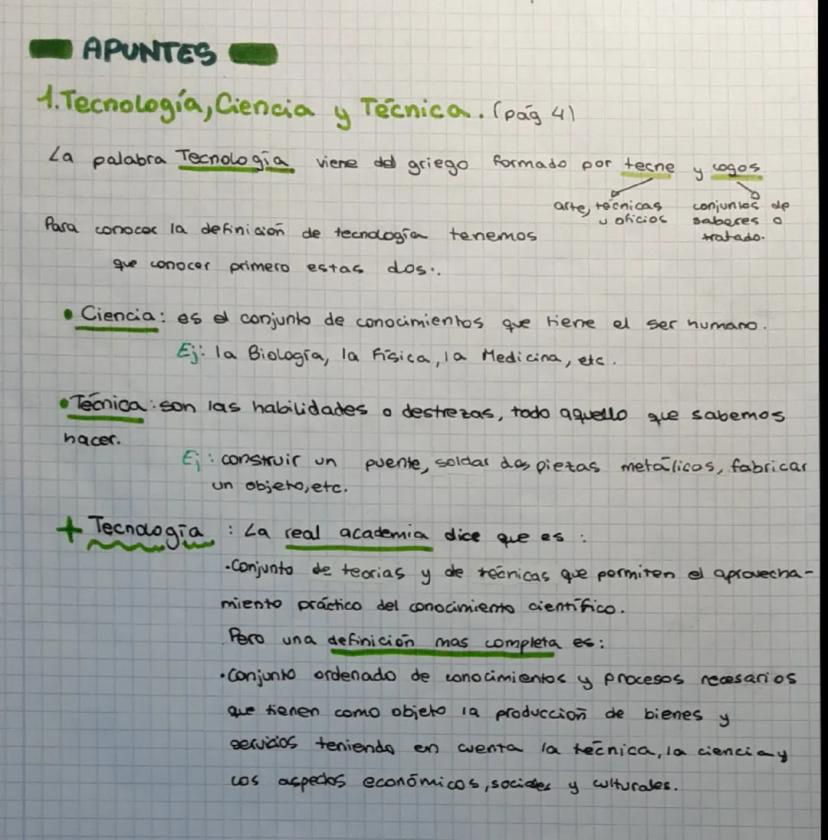 APUNTES
1. Tecnología, Ciencia y Técnica. (pág 4)
La palabra Tecnología viene del griego formado por tecne y logos
arte, técnicas y oficios
conjuntos de saberes o tratado.
Para conocer la definición de tecnología tenemos
que conocer primero estas dos:
• Ciencia: es el conjunto de conocimientos que tiene el ser humano.
Ej: la Biología, la Física, la Medicina, etc.
• Técnica: son las habilidades o destrezas, todo aquello que sabemos
hacer.
Ej: construir un puente, soldar dos piezas metálicos, fabricar
un objeto, etc.
+ Tecnología : La real academia dice que es :
·Conjunto de teorias y de técnicas que permiten el aprovecha-
miento práctico del conocimiento científico.
Pero una definición mas completa es:
·Conjunto ordenado de conocimientos y procesos necesarios
que tienen como objeto la producción de bienes y
servicios teniendo en cuenta la técnica, la ciencia y
los aspectos económicos, sociales y culturales.